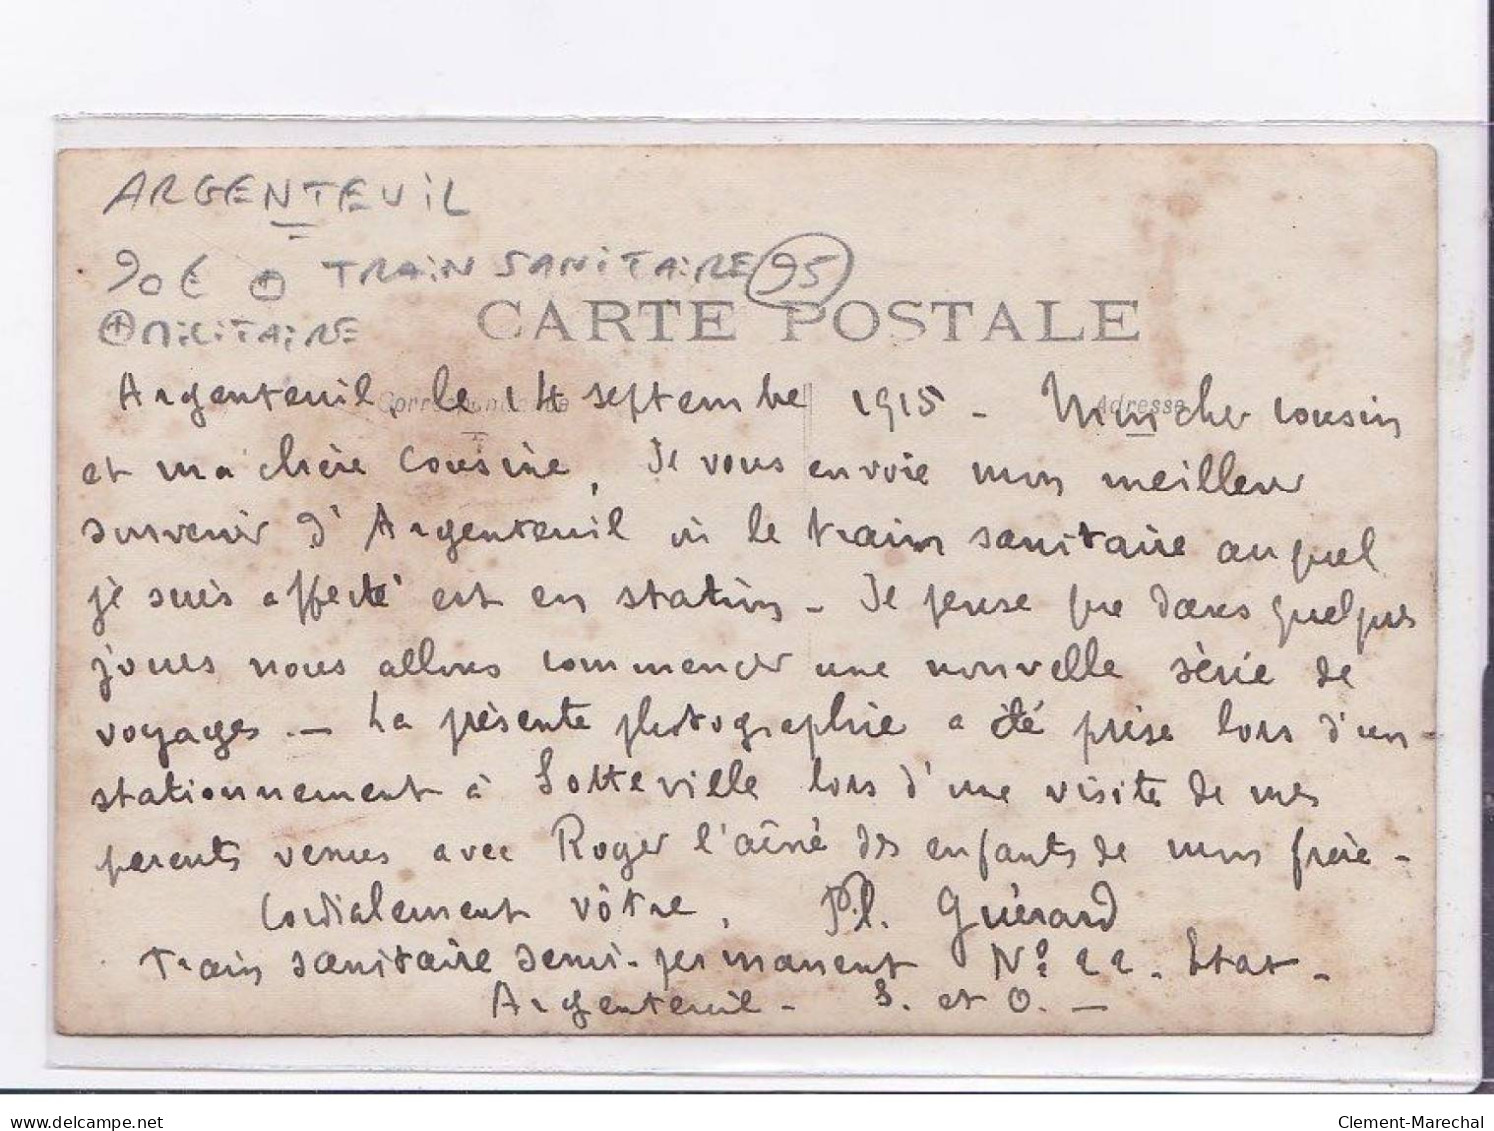 ARGENTEUIL
90€ + TRAIN SANITAIRE 95
+ MILITAIRE
CARTE POSTALE
Correspondance
Adresse
Argenteuil, le 14 septembre 1915 - Mon cher cousin
et ma chère cousine, Je vous envoie mon meilleur
souvenir d'Argenteuil où le train sanitaire auquel
je suis affecté est en station - Je pense que dans quelques
jours nous allons commencer une nouvelle série de
voyages. - La présente photographie a été prise lors d'un
stationnement à Sotteville lors d'une visite de mes
parents venus avec Roger l'aîné des enfants de mon frère -
Cordialement vôtre, Pl. Guérard
Train sanitaire semi-permanent No 22. Etat -
Argenteuil - S. et O. -
delcampe.net
Clement-Marechal